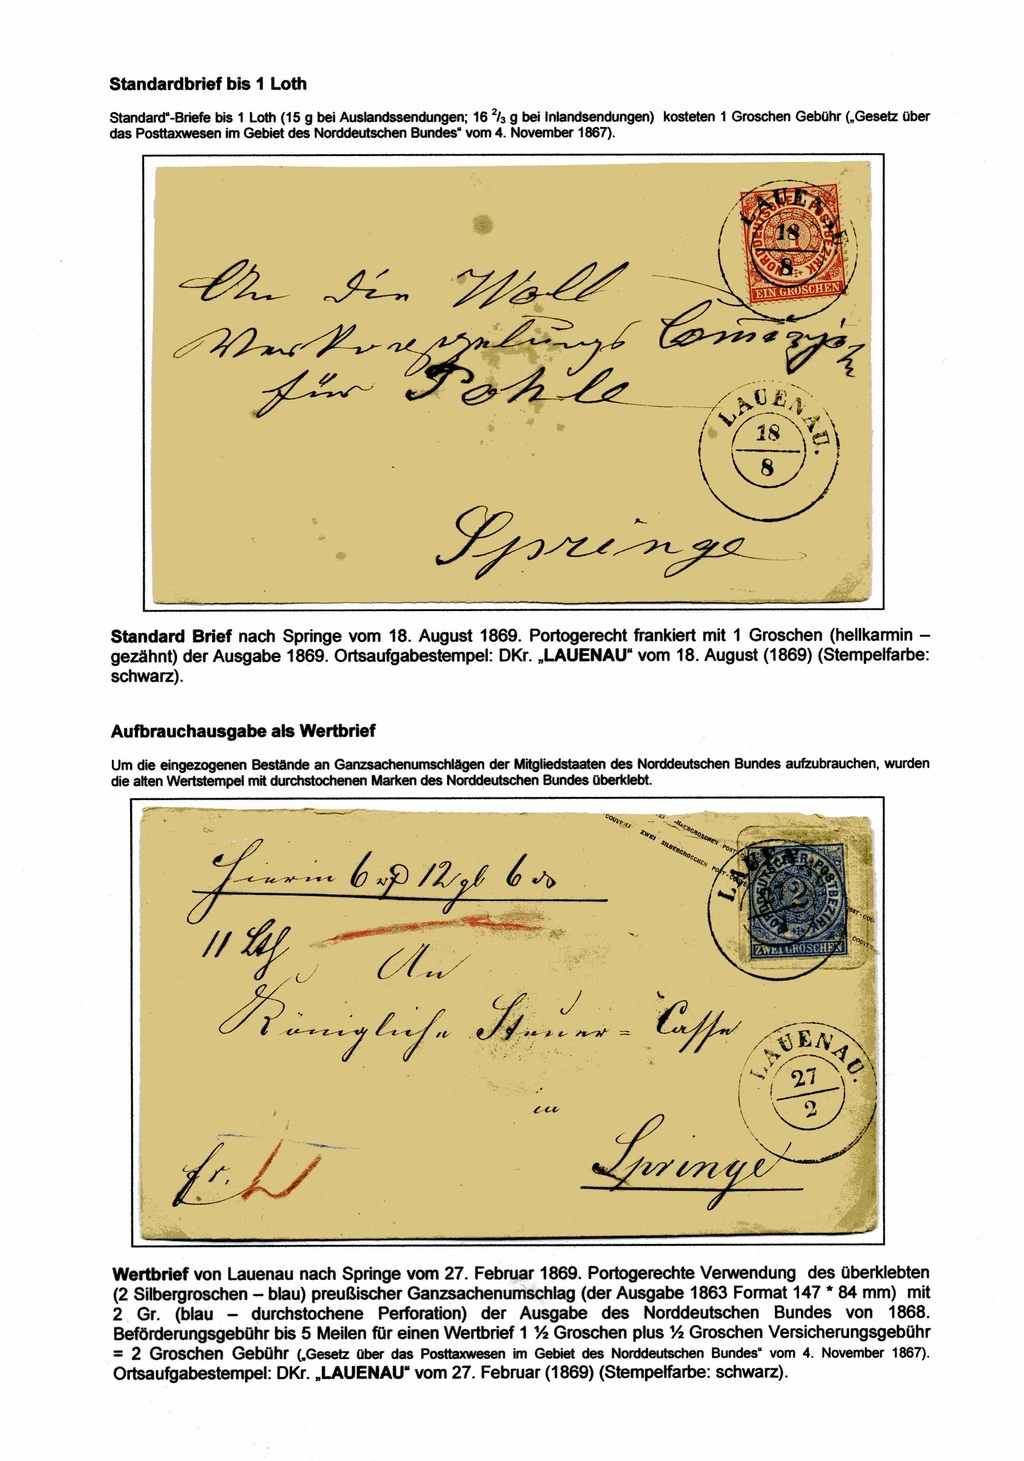 Standardbrief bis 1 Loth
Standard"-Briefe bis 1 Loth (15 g bei Auslandssendungen; 16 2/3 g bei Inlandsendungen) kosteten 1 Groschen Gebühr („Gesetz über
das Posttaxwesen im Gebiet des Norddeutschen Bundes" vom 4. November 1867).
LAUENAU
18
8
NORDDEUTSCHER POSTBEZIRK
1
EIN GROSCHEN
An die Woll
für Pohle
LAUENAU.
18
8
Springe
Standard Brief nach Springe vom 18. August 1869. Portogerecht frankiert mit 1 Groschen (hellkarmin –
gezähnt) der Ausgabe 1869. Ortsaufgabestempel: DKr. „LAUENAU" vom 18. August (1869) (Stempelfarbe:
schwarz).
Aufbrauchausgabe als Wertbrief
Um die eingezogenen Bestände an Ganzsachenumschlägen der Mitgliedstaaten des Norddeutschen Bundes aufzubrauchen, wurden
die alten Wertstempel mit durchstochenen Marken des Norddeutschen Bundes überklebt.
ZWEI SILBERGROSCHEN POST-COUVERT
LAUEN
NORDDEUTSCHER POSTBEZIRK
2
ZWEI GROSCHEN
Hierin 6 12 gl 6
11 Lth
An
Königliche Steuer=Casse
LAUENAU.
27
2
in
fr.
Springe
Wertbrief von Lauenau nach Springe vom 27. Februar 1869. Portogerechte Verwendung des überklebten
(2 Silbergroschen – blau) preußischer Ganzsachenumschlag (der Ausgabe 1863 Format 147 * 84 mm) mit
2 Gr. (blau – durchstochene Perforation) der Ausgabe des Norddeutschen Bundes von 1868.
Beförderungsgebühr bis 5 Meilen für einen Wertbrief 1 ½ Groschen plus ½ Groschen Versicherungsgebühr
= 2 Groschen Gebühr („Gesetz über das Posttaxwesen im Gebiet des Norddeutschen Bundes" vom 4. November 1867).
Ortsaufgabestempel: DKr. „LAUENAU" vom 27. Februar (1869) (Stempelfarbe: schwarz).